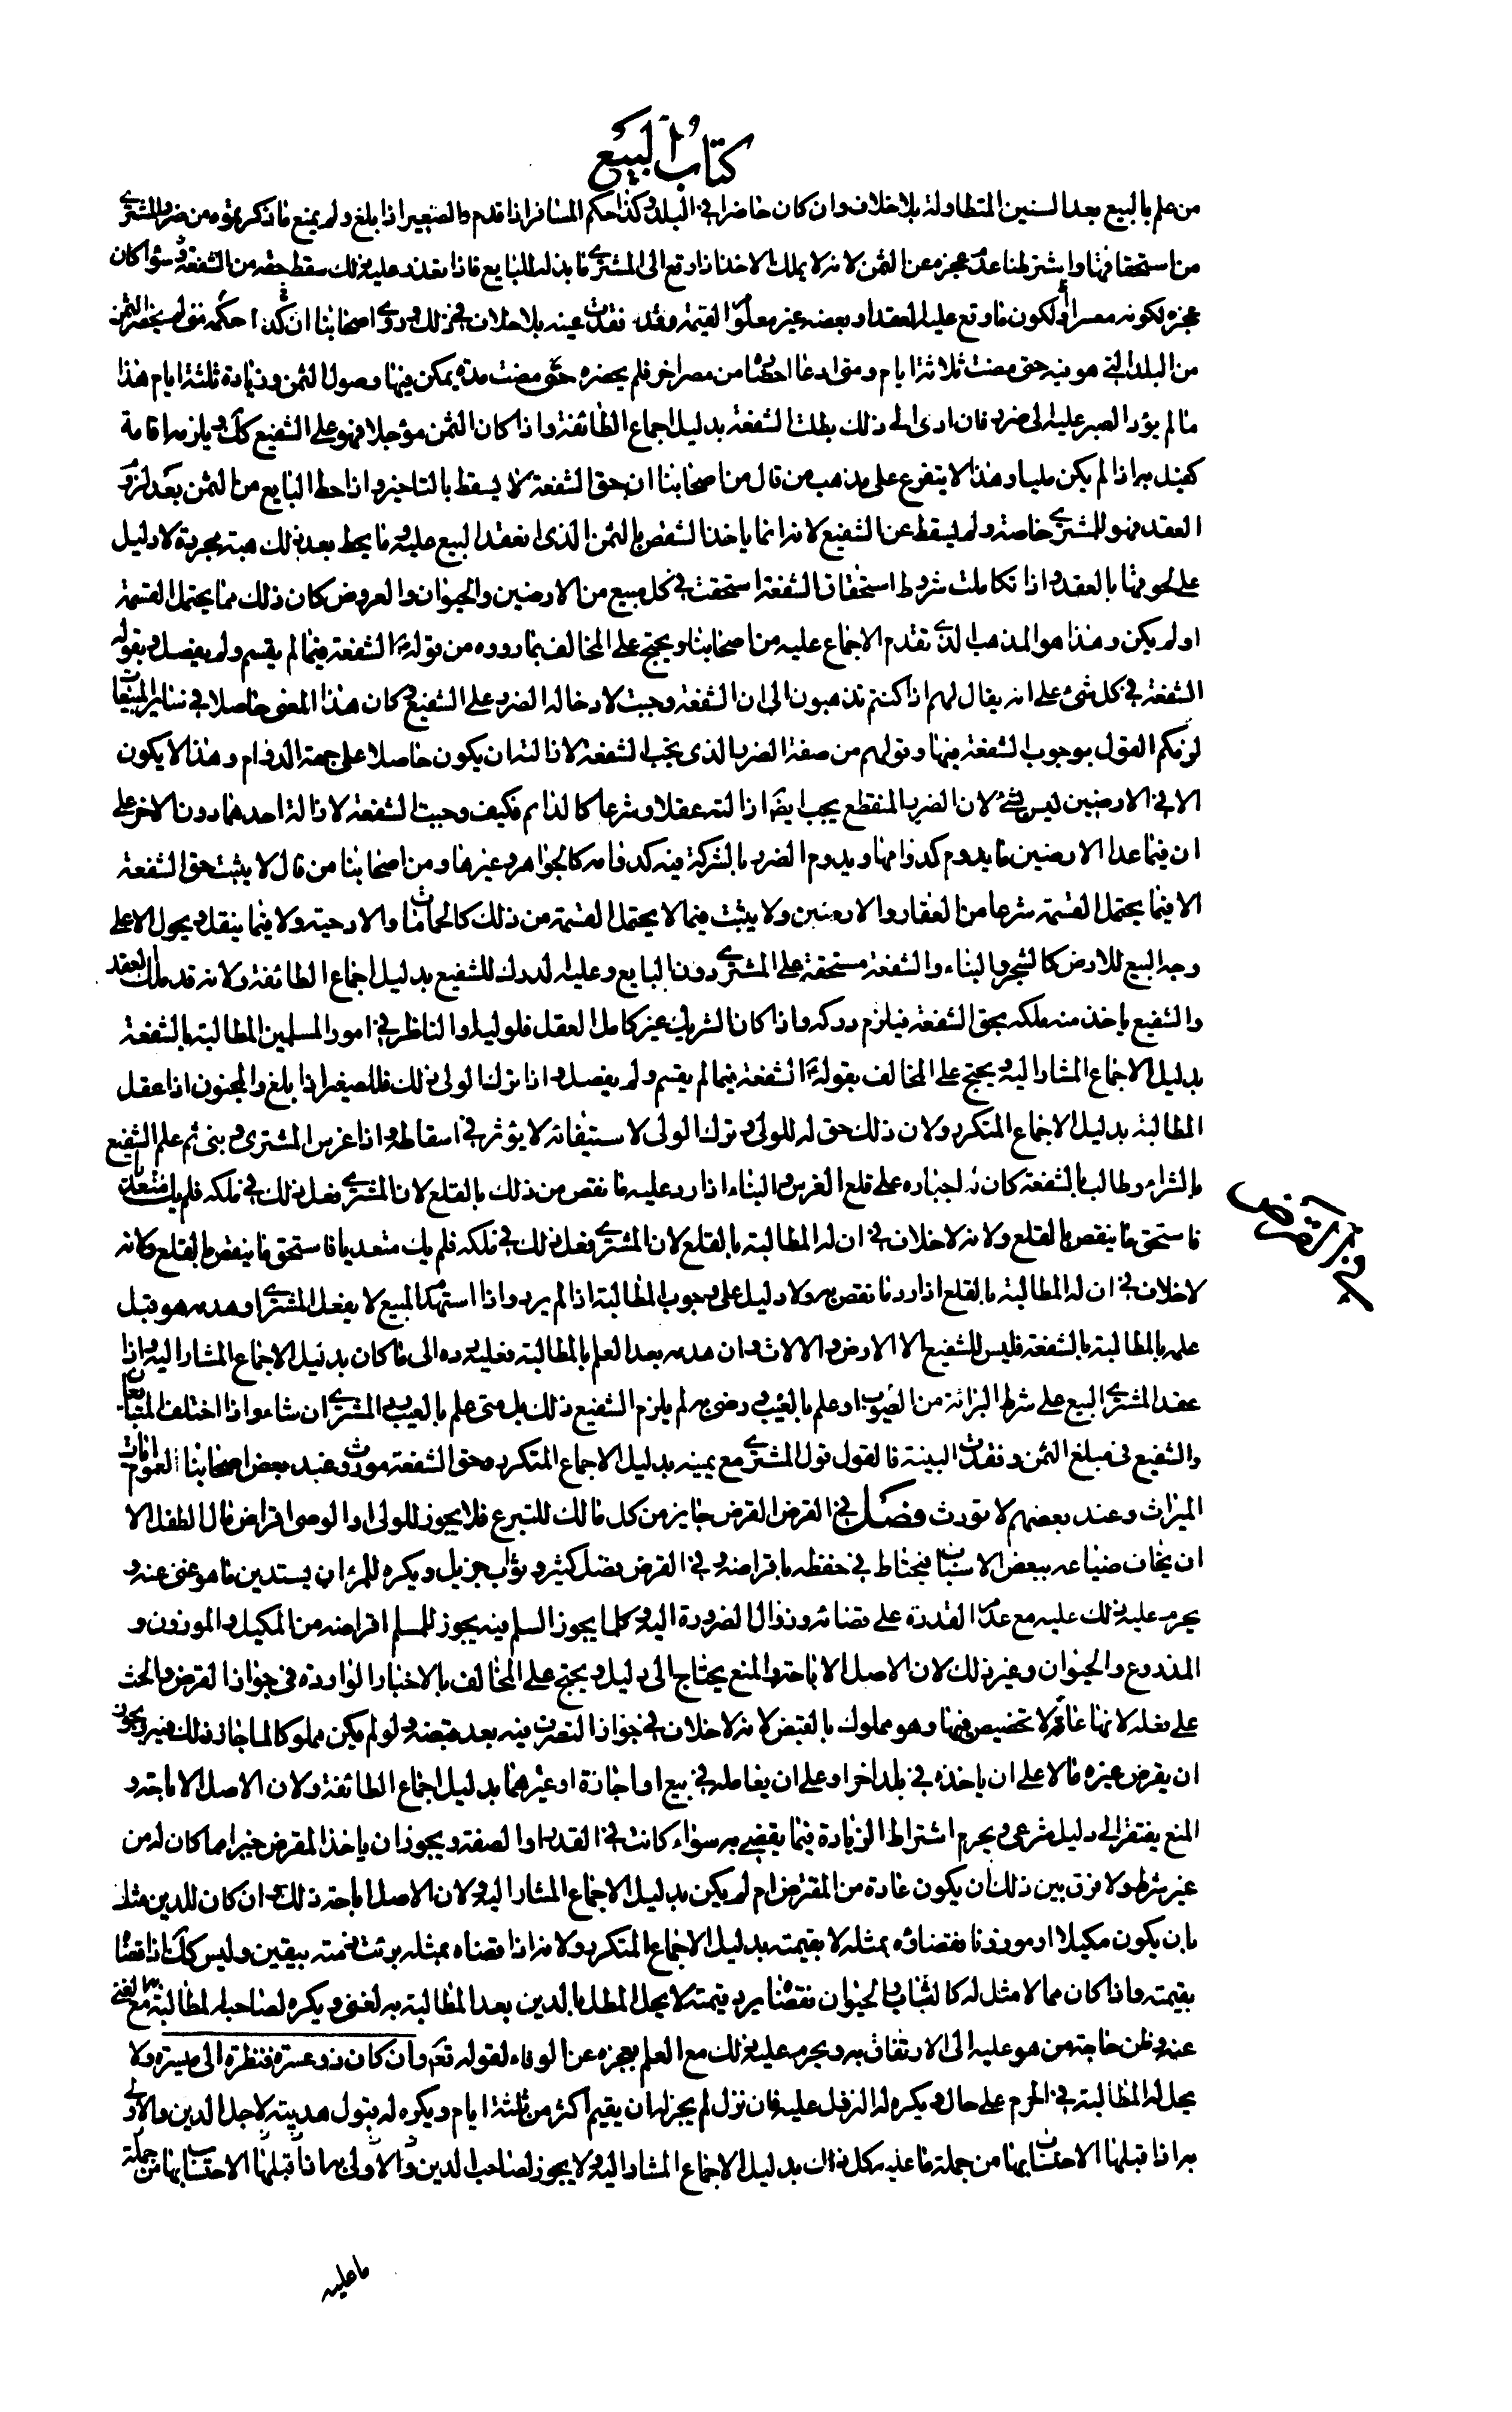 كتاب البيع
من علم بالبيع بعد السنين المتطاولة بلا خلاف وان كان حاضرا في البلد وكذا حكم المسافر اذا قدم والصغير اذا بلغ ولم يمنع ما ذكرتموه من ضرر المشتري
من استحقاقها واشترطنا عدم عجزه عن الثمن لانه لا يملك الاخذ اذا وقع الى المشتري ما بذله للبايع فاذا تعذر عليه ذلك سقط حقه من الشفعة وسواء كان
عجزه لكونه معسرا او لكون ما وقع عليه العقد او بعضه غير معلوم القيمة وقد فقدت عينه بلا خلاف في ذلك وروى اصحابنا ان كذا حكمه متى لم يحضر الثمن
من البلد الذي هو فيه حتى مضت ثلاثة ايام ومتى ادعا احضاره من مصر اخر فلم يحضره حتى مضت مدة يمكن فيها وصول الثمن وزيادة ثلثة ايام هذا
ما لم يؤد الصبر عليه الى ضرر فان ادى الى ذلك بطلت الشفعة بدليل اجماع الطائفة واذا كان الثمن مؤجلا فهو على الشفيع كك ويلزمه اقامة
كفيل به اذا لم يكن مليا وهذا لا يتفرع على مذهب من قال من اصحابنا ان حق الشفعة لا يسقط بالتاخير واذا حط البايع من الثمن بعد لزوم
العقد فهو للمشتري خاصة ولم يسقط عن الشفيع لانه انما ياخذ الشقص بالثمن الذي انعقد البيع عليه وما يحط بعد ذلك هبة مجردة لا دليل
على لحوقها بالعقد واذا تكاملت شروط استحقاق الشفعة استحقت في كل مبيع من الارضين والحيوان والعروض كان ذلك مما يحتمل القسمة
او لم يكن وهذا هو المذهب الذي تقدم الاجماع عليه من اصحابنا ويحتج على المخالف بما رووه من قوله ع الشفعة فيما لم يقسم ولم يفصل وبقوله
الشفعة في كل شئ على انه يقال لهم اذا كنتم تذهبون الى ان الشفعة وجبت لادخاله الضرر على الشفيع وكان هذا المعنى حاصلا في سائر المبيعات
لزمكم القول بوجوب الشفعة فيها وقولهم من صفة الضرر الذي تجب الشفعة لازالته ان يكون حاصلا على جهة الدوام وهذا لا يكون
الا في الارضين ليس بشئ لان الضرر المنقطع يجب ايضا ازالته عقلا وشرعا كالدائم فكيف وجبت الشفعة لازالة احدهما دون الاخر على
ان فيما عدا الارضين ما يدوم كدوامها ويدوم الضرر بالشركة فيه كدوامه كالجواهر وغيرها ومن اصحابنا من قال لا يثبت حق الشفعة
الا فيما يحتمل القسمة شرعا من العقار والارضين ولا يثبت فيما لا يحتمل القسمة من ذلك كالحمامات والارحية ولا فيما ينقل ويحول الا على
وجه البيع للارض كالشجر والبناء والشفعة مستحقة على المشتري دون البايع وعليه الدرك للشفيع بدليل اجماع الطائفة ولانه قد ملك العقد
والشفيع ياخذ منه ملكه بحق الشفعة فيلزم دركه واذا كان الشريك غير كامل العقل فلوليه والناظر في امور المسلمين المطالبة بالشفعة
بدليل الاجماع المشار اليه ويحتج على المخالف بقوله ع الشفعة فيما لم يقسم ولم يفصل واذا ترك الولي ذلك فللصغير اذا بلغ والمجنون اذا عقل
المطالبة بدليل الاجماع المتكرر ولان ذلك حق له للولي وترك الولي لاستيفائه لا يؤثر في اسقاطه واذا غرس المشتري وبنى ثم علم الشفيع
بالشراء وطالب بالشفعة كان له اجباره على قلع الغرس والبناء اذا رد عليه ما نقص من ذلك بالقلع لان المشتري فعل ذلك في ملكه فلم يك متعديا
فاستحق ما ينقص بالقلع ولانه لا خلاف في ان له المطالبة بالقلع لان المشتري فعل ذلك في ملكه فلم يك متعديا فاستحق ما ينقص بالقلع ولانه
لا خلاف في ان له المطالبة بالقلع اذا رد ما نقص به ولا دليل على وجوب المطالبة اذا لم يرد واذا استهدم المبيع لا بفعل المشتري او هدمه هو قبل
علمه بالمطالبة بالشفعة فليس للشفيع الا الارض والالات وان هدمه بعد العلم بالمطالبة فعليه رده الى ما كان بدليل الاجماع المشار اليه واذا
عقد المشتري البيع على شرط البرائة من العيوب او علم بالعيب ورضي به لم يلزم الشفيع ذلك بل متى علم بالعيب رد على المشتري ان شاء واذا اختلف المتبايعان
والشفيع في مبلغ الثمن وفقدت البينة فالقول قول المشتري مع يمينه بدليل الاجماع المتكرر وحق الشفعة موروث عند بعض اصحابنا لعموم ايات
الميراث وعند بعضهم لا تورث فصل في القرض القرض جايز من كل مالك للتبرع فلا يجوز للولي او الوصي اقراض مال الطفل الا
ان يخاف ضياعه ببعض الاسباب فيحتاط في حفظه باقراضه وفي القرض فضل كثير وثواب جزيل ويكره للمرء ان يستدين ما هو غني عنه و
يحرم عليه ذلك عليه مع عدم القدرة على قضائه وزوال الضرورة اليه وكلما يجوز السلم فيه يجوز للمسلم اقراضه من المكيل والموزون و
المذروع والحيوان وغير ذلك لان الاصل الاباحة والمنع يحتاج الى دليل ويحتج على المخالف بالاخبار الواردة في جواز القرض والحث
على فعله لانها عامة لا تخصيص فيها وهو مملوك بالقبض لانه لا خلاف في جواز التصرف فيه بعد قبضه ولو لم يكن مملوكا لما جاز ذلك فيه ويجوز
ان يقرض غيره مالا على ان ياخذه في بلد اخر او على ان يعامله في بيع او اجازة او غيرهما بدليل اجماع الطائفة ولان الاصل الاباحة و
المنع يفتقر الى دليل شرعي ويحرم اشتراط الزيادة فيما يقضي به سواء كانت في القدر او الصفة ويجوز ان ياخذ المقرض خيرا مما كان له من
غير شرط ولا فرق بين ذلك ان يكون عادة من المقترض ام لم يكن بدليل الاجماع المشار اليه ولان الاصل اباحة ذلك وان كان للدين مثل
بان يكون مكيلا او موزونا فقضاؤه بمثله لا بقيمته بدليل الاجماع المتكرر ولانه اذا قضاه بمثله برئت ذمته بيقين وليس كك اذا قضا
بقيمته واذا كان مما لا مثل له كالثياب والحيوان فقضاه برد قيمته لا يحل المطل بالدين بعد المطالبة به لغني ويكره لصاحبه المطالبة به مع الغنى
عنه وظن حاجة من هو عليه الى الارتفاق به ويحرم عليه ذلك مع العلم بعجزه عن الوفاء لقوله تعم وان كان ذو عسرة فنظرة الى ميسرة ولا
يحل له المطالبة في الحرم على حال ويكره له النزول عليه فان نزل لم يجز له ان يقيم اكثر من ثلثة ايام ويكره له قبول هديته لاجل الدين والاولى
به اذا قبلها الاحتساب بها من جملة ما عليه كل ذلك بدليل الاجماع المشار اليه ولا يجوز لصاحب الدين والاولى به اذا قبلها الاحتساب بها من جملة
ما عليه
في القرض